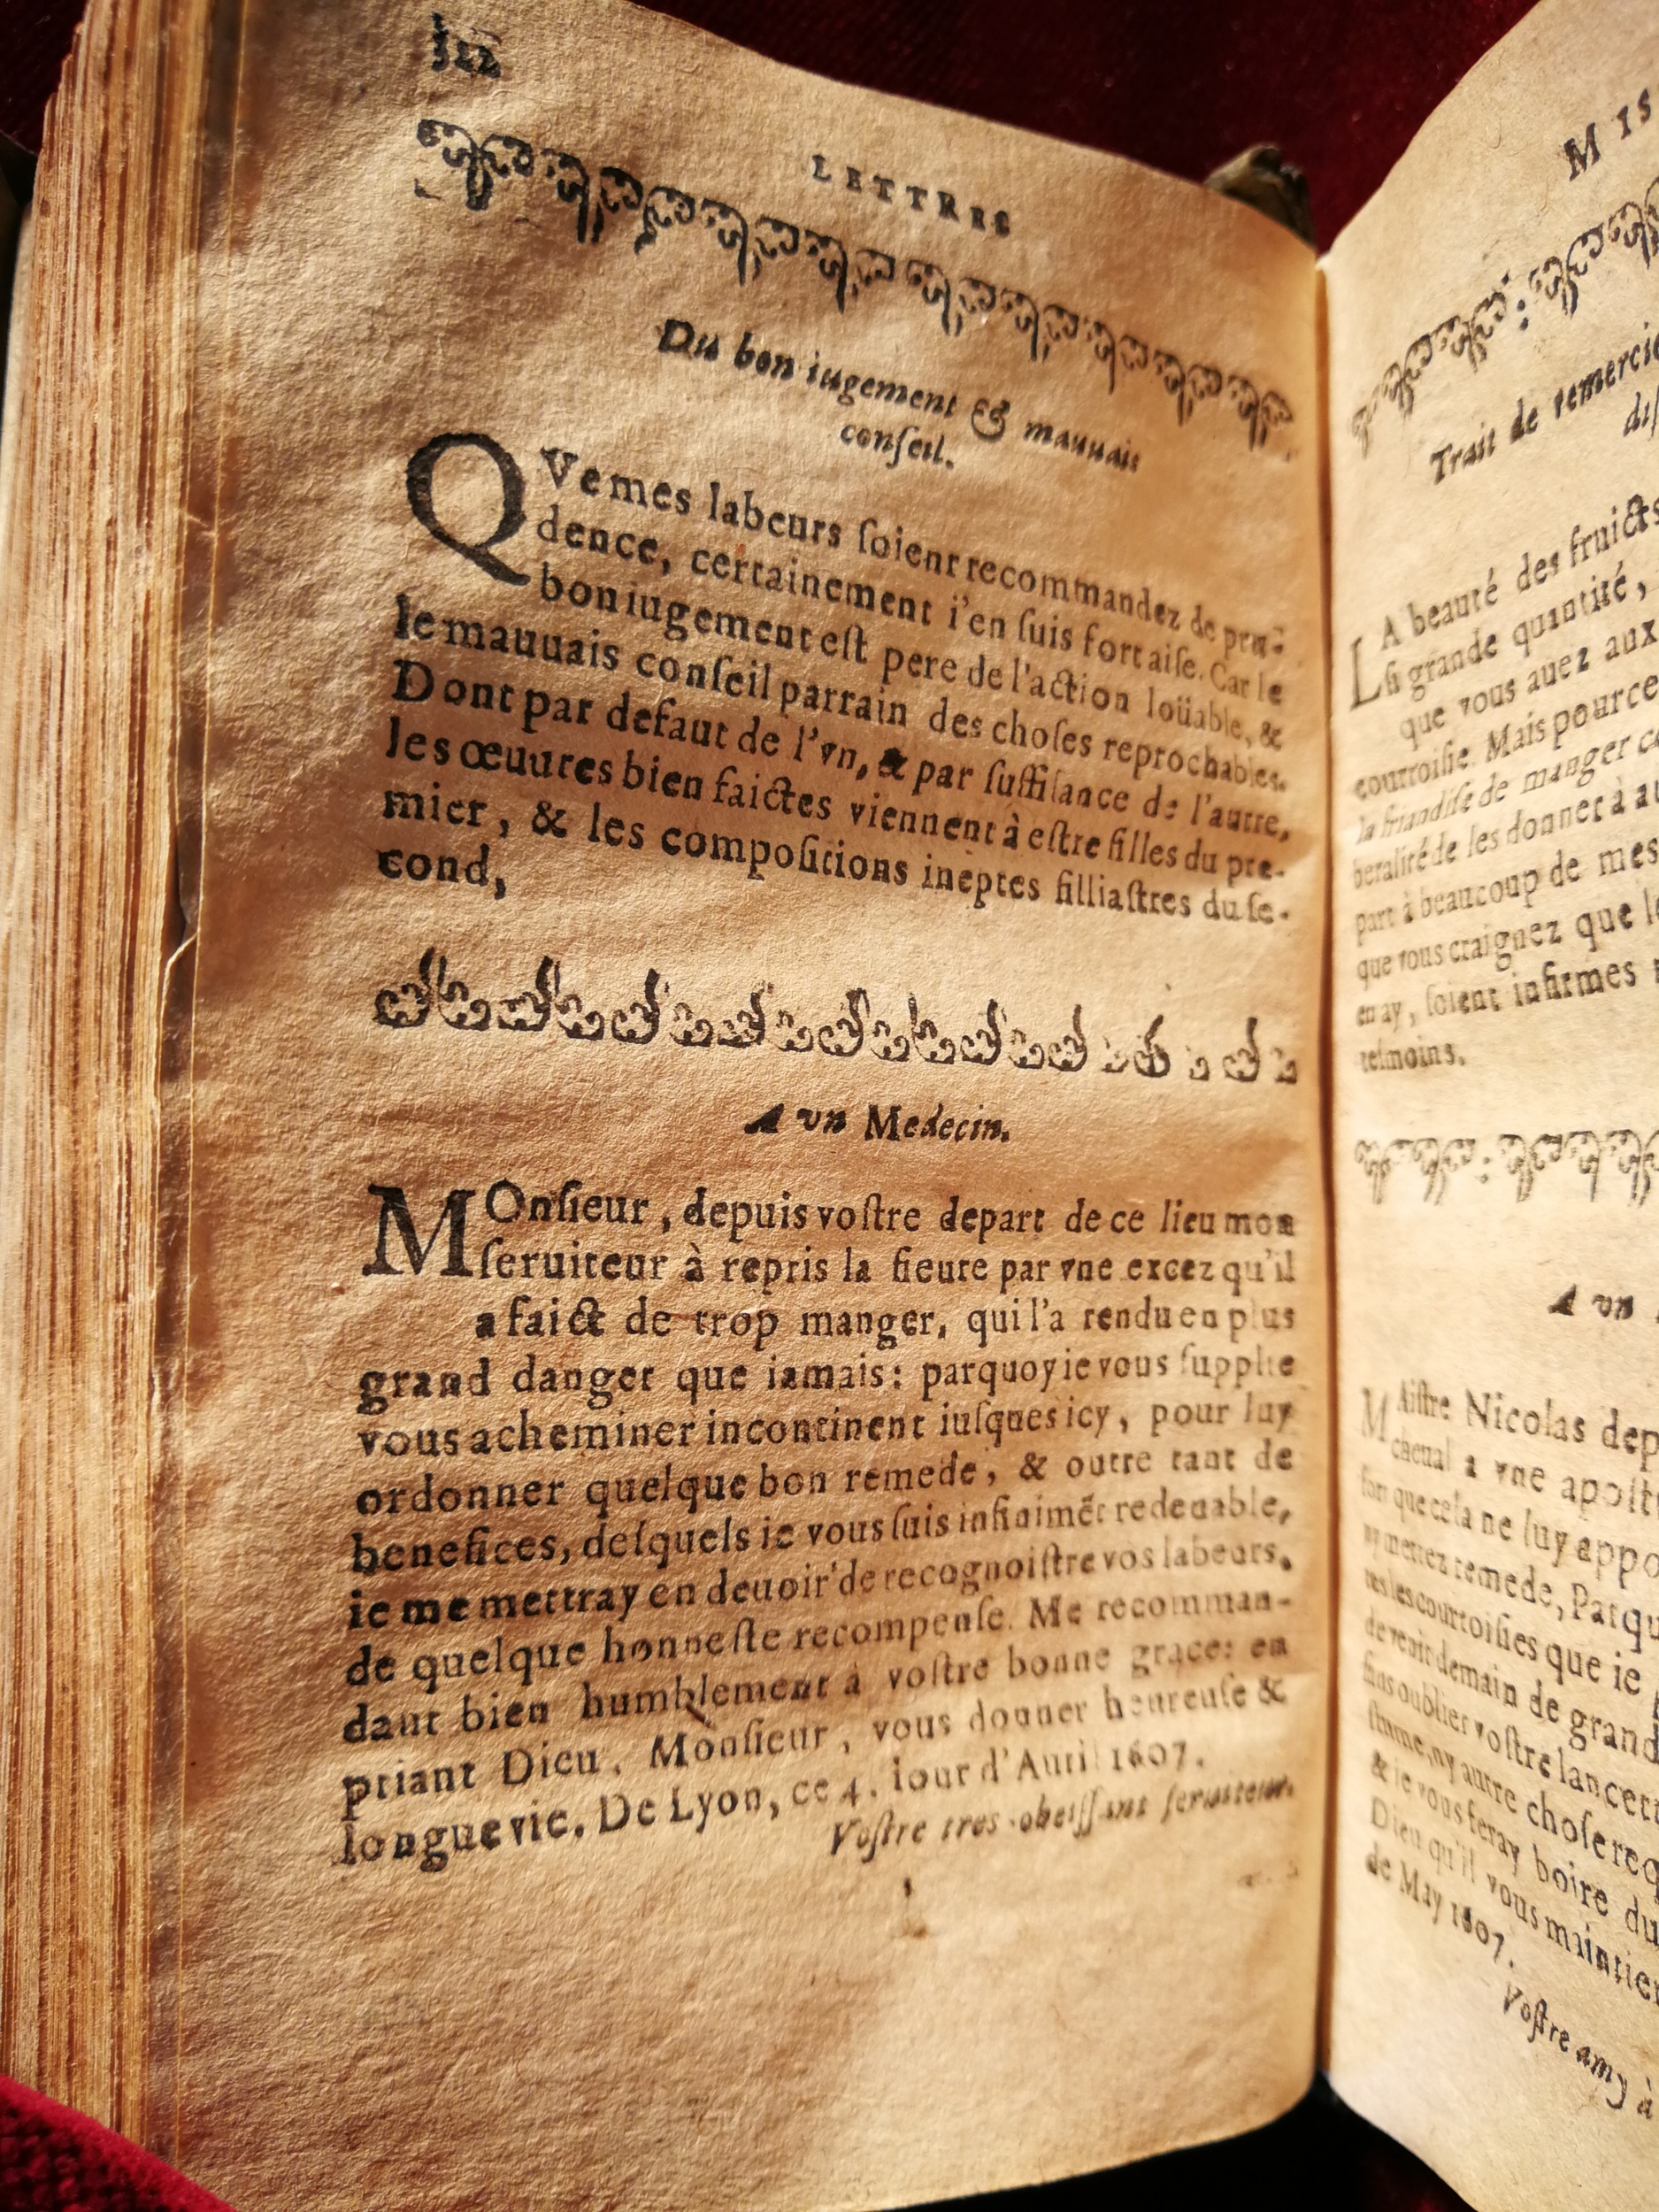 LETTRES
Du bon iugement & mauuais
conſeil.
QVe mes labeurs ſoient recommandez de pru-
dence, certainement i'en ſuis fort aiſe. Car le
bon iugement eſt pere de l'action loüable, &
le mauuais conſeil parrain des choſes reprochables.
Dont par defaut de l'vn, & par ſuffiſance de l'autre,
les œuures bien faictes viennent à eſtre filles du pre-
mier, & les compoſitions ineptes filliaſtres du ſe-
cond,
A vn Medecin.
MOnſieur, depuis voſtre depart de ce lieu mon
ſeruiteur à repris la fieure par vne excez qu'il
a faict de trop manger, qui l'a rendu en plus
grand danger que iamais: parquoy ie vous ſupplie
vous acheminer incontinent iuſques icy, pour luy
ordonner quelque bon remede, & outre tant de
benefices, deſquels ie vous ſuis infinimẽt redeuable,
ie me mettray en deuoir de recognoiſtre vos labeurs,
de quelque honneſte recompenſe. Me recomman-
dant bien humblement à voſtre bonne grace: en
priant Dieu, Monſieur, vous donner heureuſe &
longue vie. De Lyon, ce 4. iour d'Auril 1607.
Voſtre tres-obeiſſant ſeruiteur.
MIS
Trait de remercie
diſ
LA beauté des fruicts
ſi grande quantité,
que vous auez aux
courtoiſie. Mais pource
la friandiſe de manger ce
beralité de les donner à au
part à beaucoup de mes
que vous craignez que le
en ay, ſoient infirmes
teſmoins.
A vn
MAiſtre Nicolas dep
cheual a vne apoſt
fort que cela ne luy appo
ny mettez remede, Parqu
tes les courtoiſies que ie
de venir demain de grand
ſans oublier voſtre lancett
ny autre choſe req
& ie vous feray boire du
Dieu qu'il vous maintien
de May 1607.
Voſtre amy à